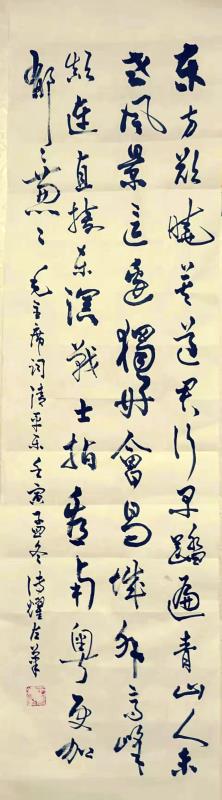 东方欲晓莫道君行早踏遍青山人未
老风景这边独好会昌城外高峰
颠连直接东溟战士指看南粤更加
郁〻葱〻
毛主席词清平乐壬寅孟冬传耀左笔